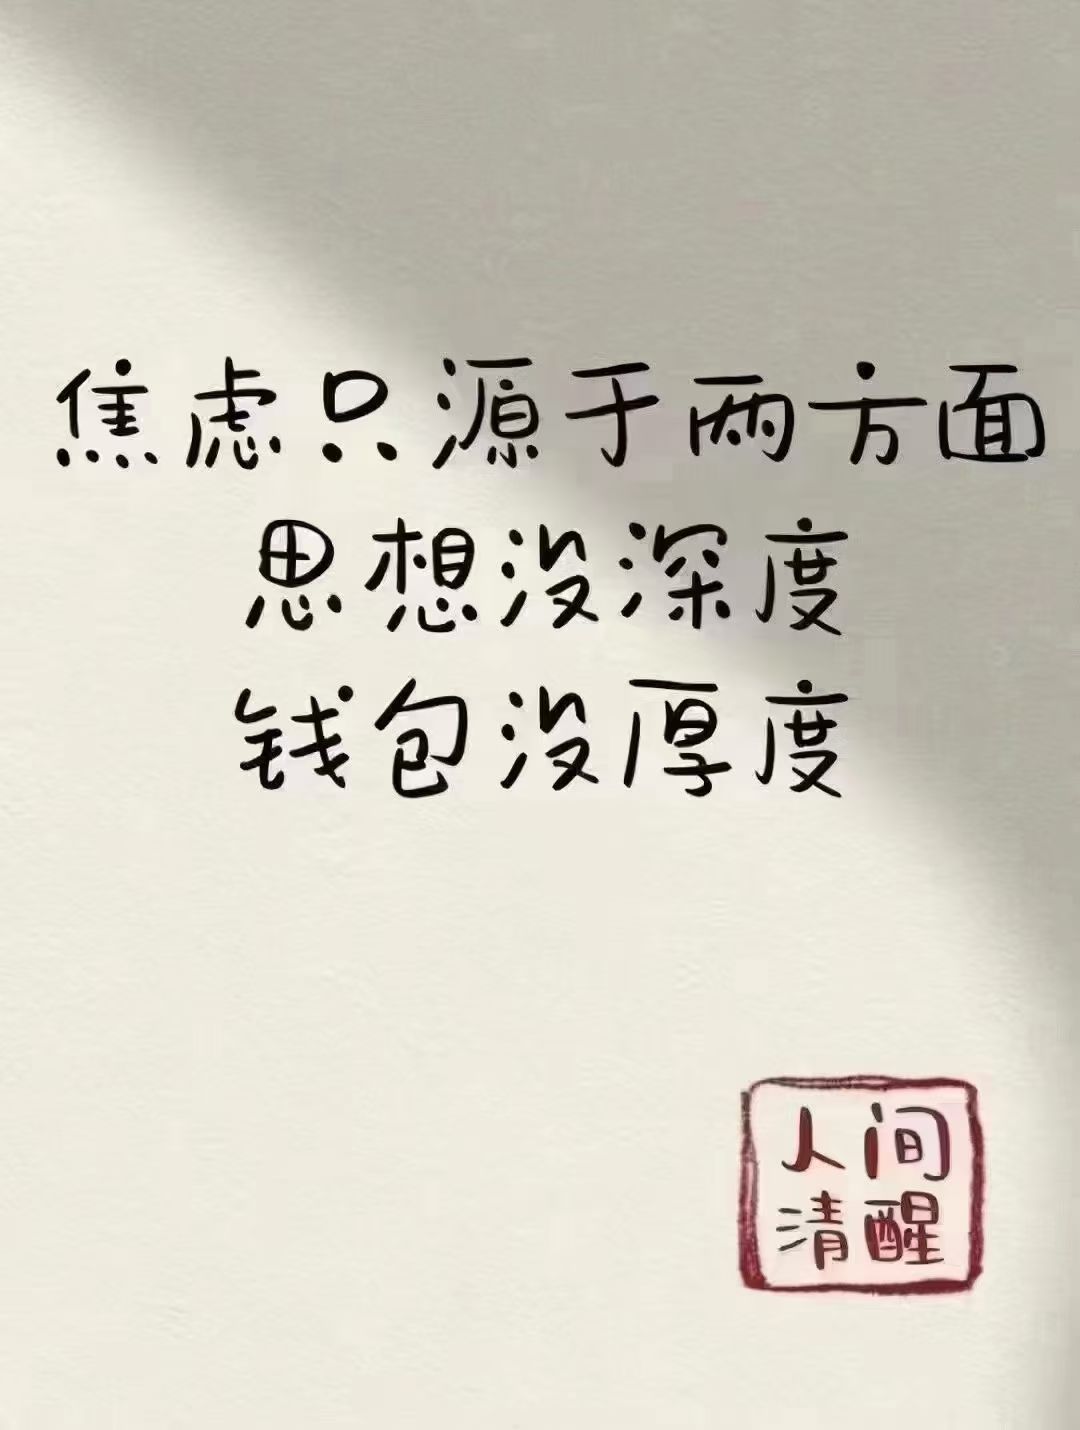 焦虑只源于两方面
思想没深度
钱包没厚度
人间
清醒